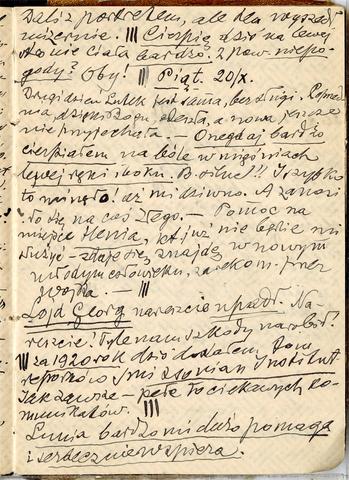 Dalsz portretem, ale dla wyszedł
mizernie. ||| Cierpię dziś na lewej
stronie ciała bardzo. Z pow. niepo-
gody? Oby! || Piąt. 20/X.
Drugi dzień Lutek jest sama, bez sługi.
nia, dzięki Bogu, odeszła, a nowa jeszcze
nie przyjechała. — Onegdaj bardzo
cierpiałem na bóle w mięśniach
lewej ręki i boku. B. silne!! I szybko
to minęło! aż mi dziwno. A zanosi-
ło się na coś złego. — Pomoc na
miejsce Henia, który już nie będzie mi
służyć — zdaje się, znajdę w nowym
młodym człowieku, zarekom. przez
— |||
Lojd Georg nareszcie upadł. Na-
reszcie! Tyle nam szkody narobił.
||| za 1920 rok dziś dostałem Tom
Smitsonian Institut
Jak zawsze — pełe to ciekawych ko-
munikatów. |||
Lunia bardzo mi dużo pomaga
i serdecznie wspiera.